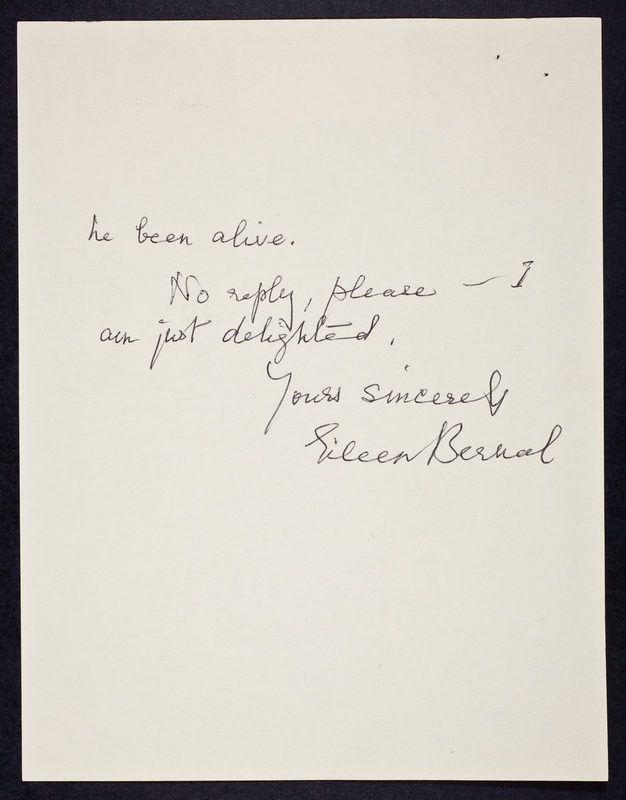 he been alive.
No reply, please – I
am just delighted.
Yours sincerely
Eileen Bernal